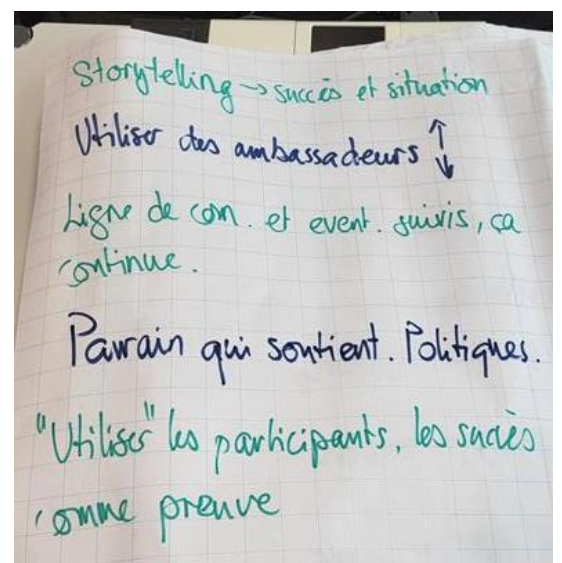 Storytelling → succès et situation
Utiliser des ambassadeurs ↑
↓
Ligne de com. et event. suivis, ça
continue.
Parrain qui soutient. Politiques.
"Utiliser" les participants, les succès
comme preuve